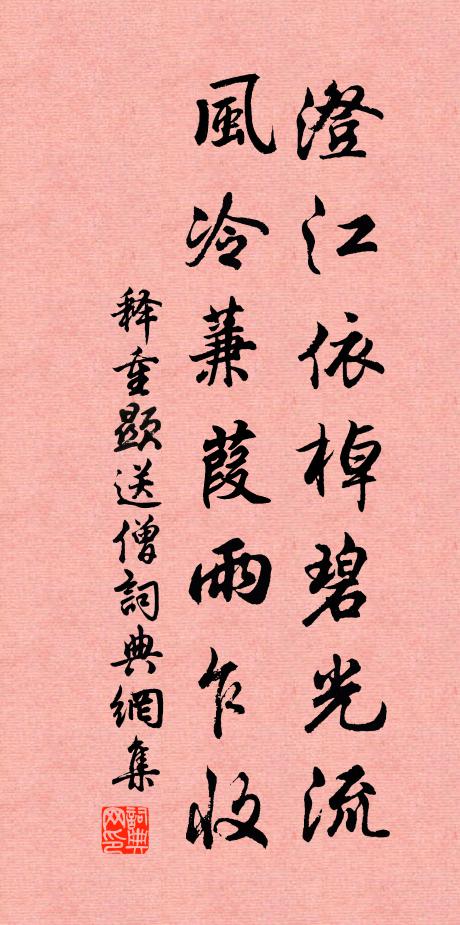 澄江依棹碧光流
風冷蒹葭雨乍收
释重顯送僧詞典網集
詞典網印